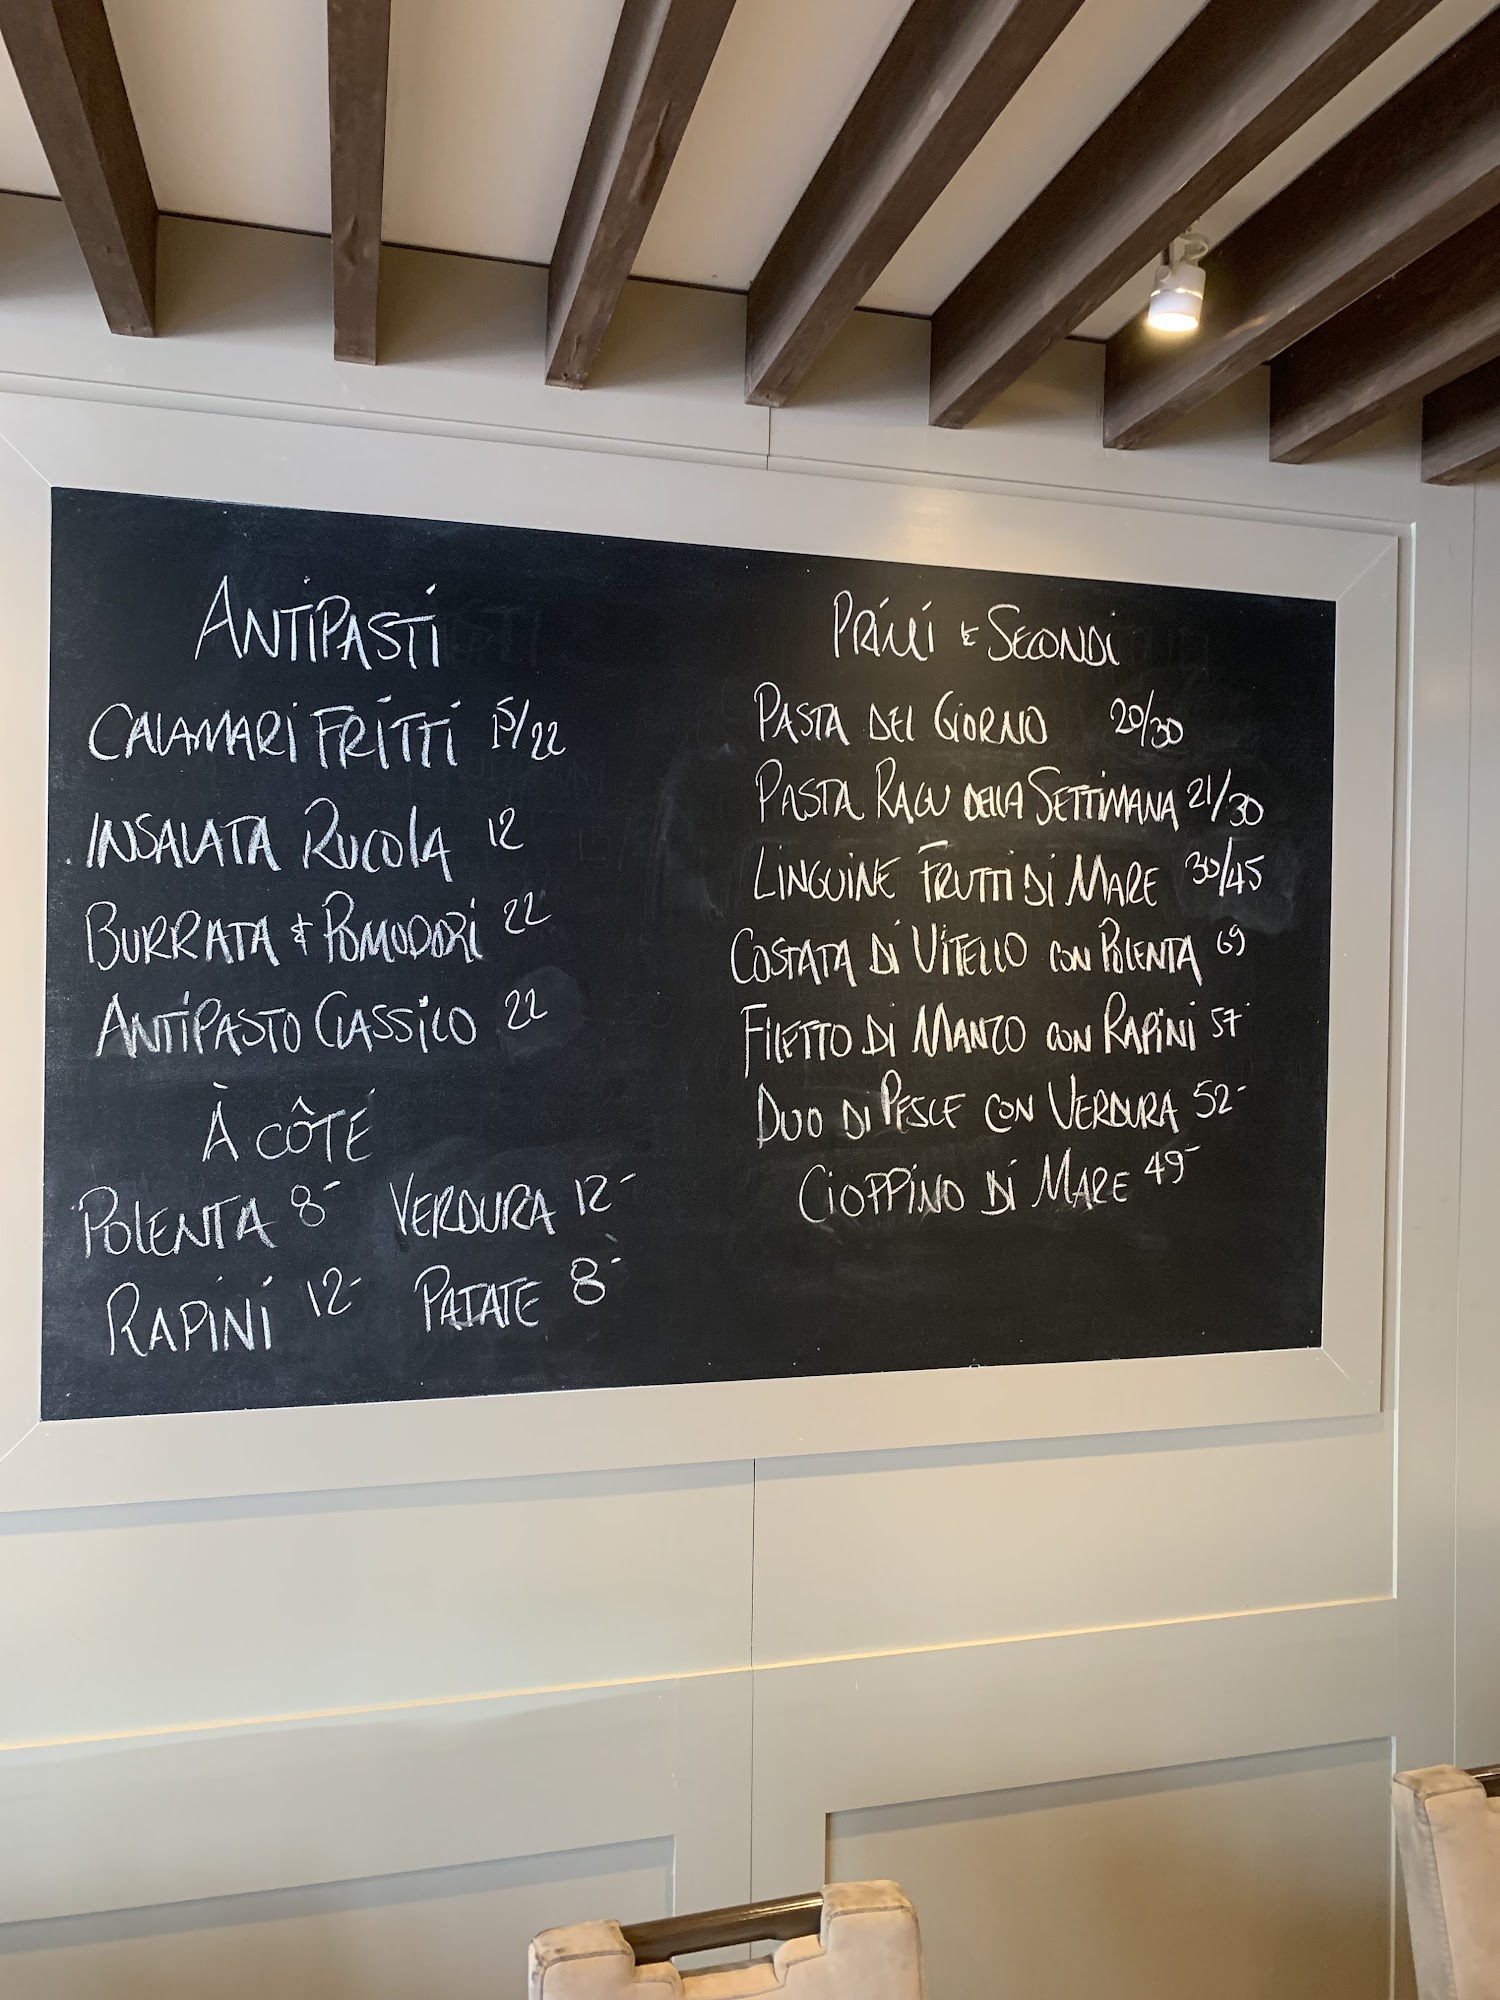 ANTIPASTI
CALAMARI FRITTI 15/22
INSALATA RUCOLA 12
BURRATA & POMODORI 22
ANTIPASTO CLASSICO 22
À CÔTÉ
POLENTA 8- VERDURA 12-
RAPINI 12- PATATE 8-
PRIMI & SECONDI
PASTA DEL GIORNO 20/30
PASTA RAGU DELLA SETTIMANA 21/30
LINGUINE FRUTTI DI MARE 30/45
COSTATA DI VITELLO CON POLENTA 69
FILETTO DI MANZO CON RAPINI 57-
DUO DI PESCE CON VERDURA 52-
CIOPPINO DI MARE 49-